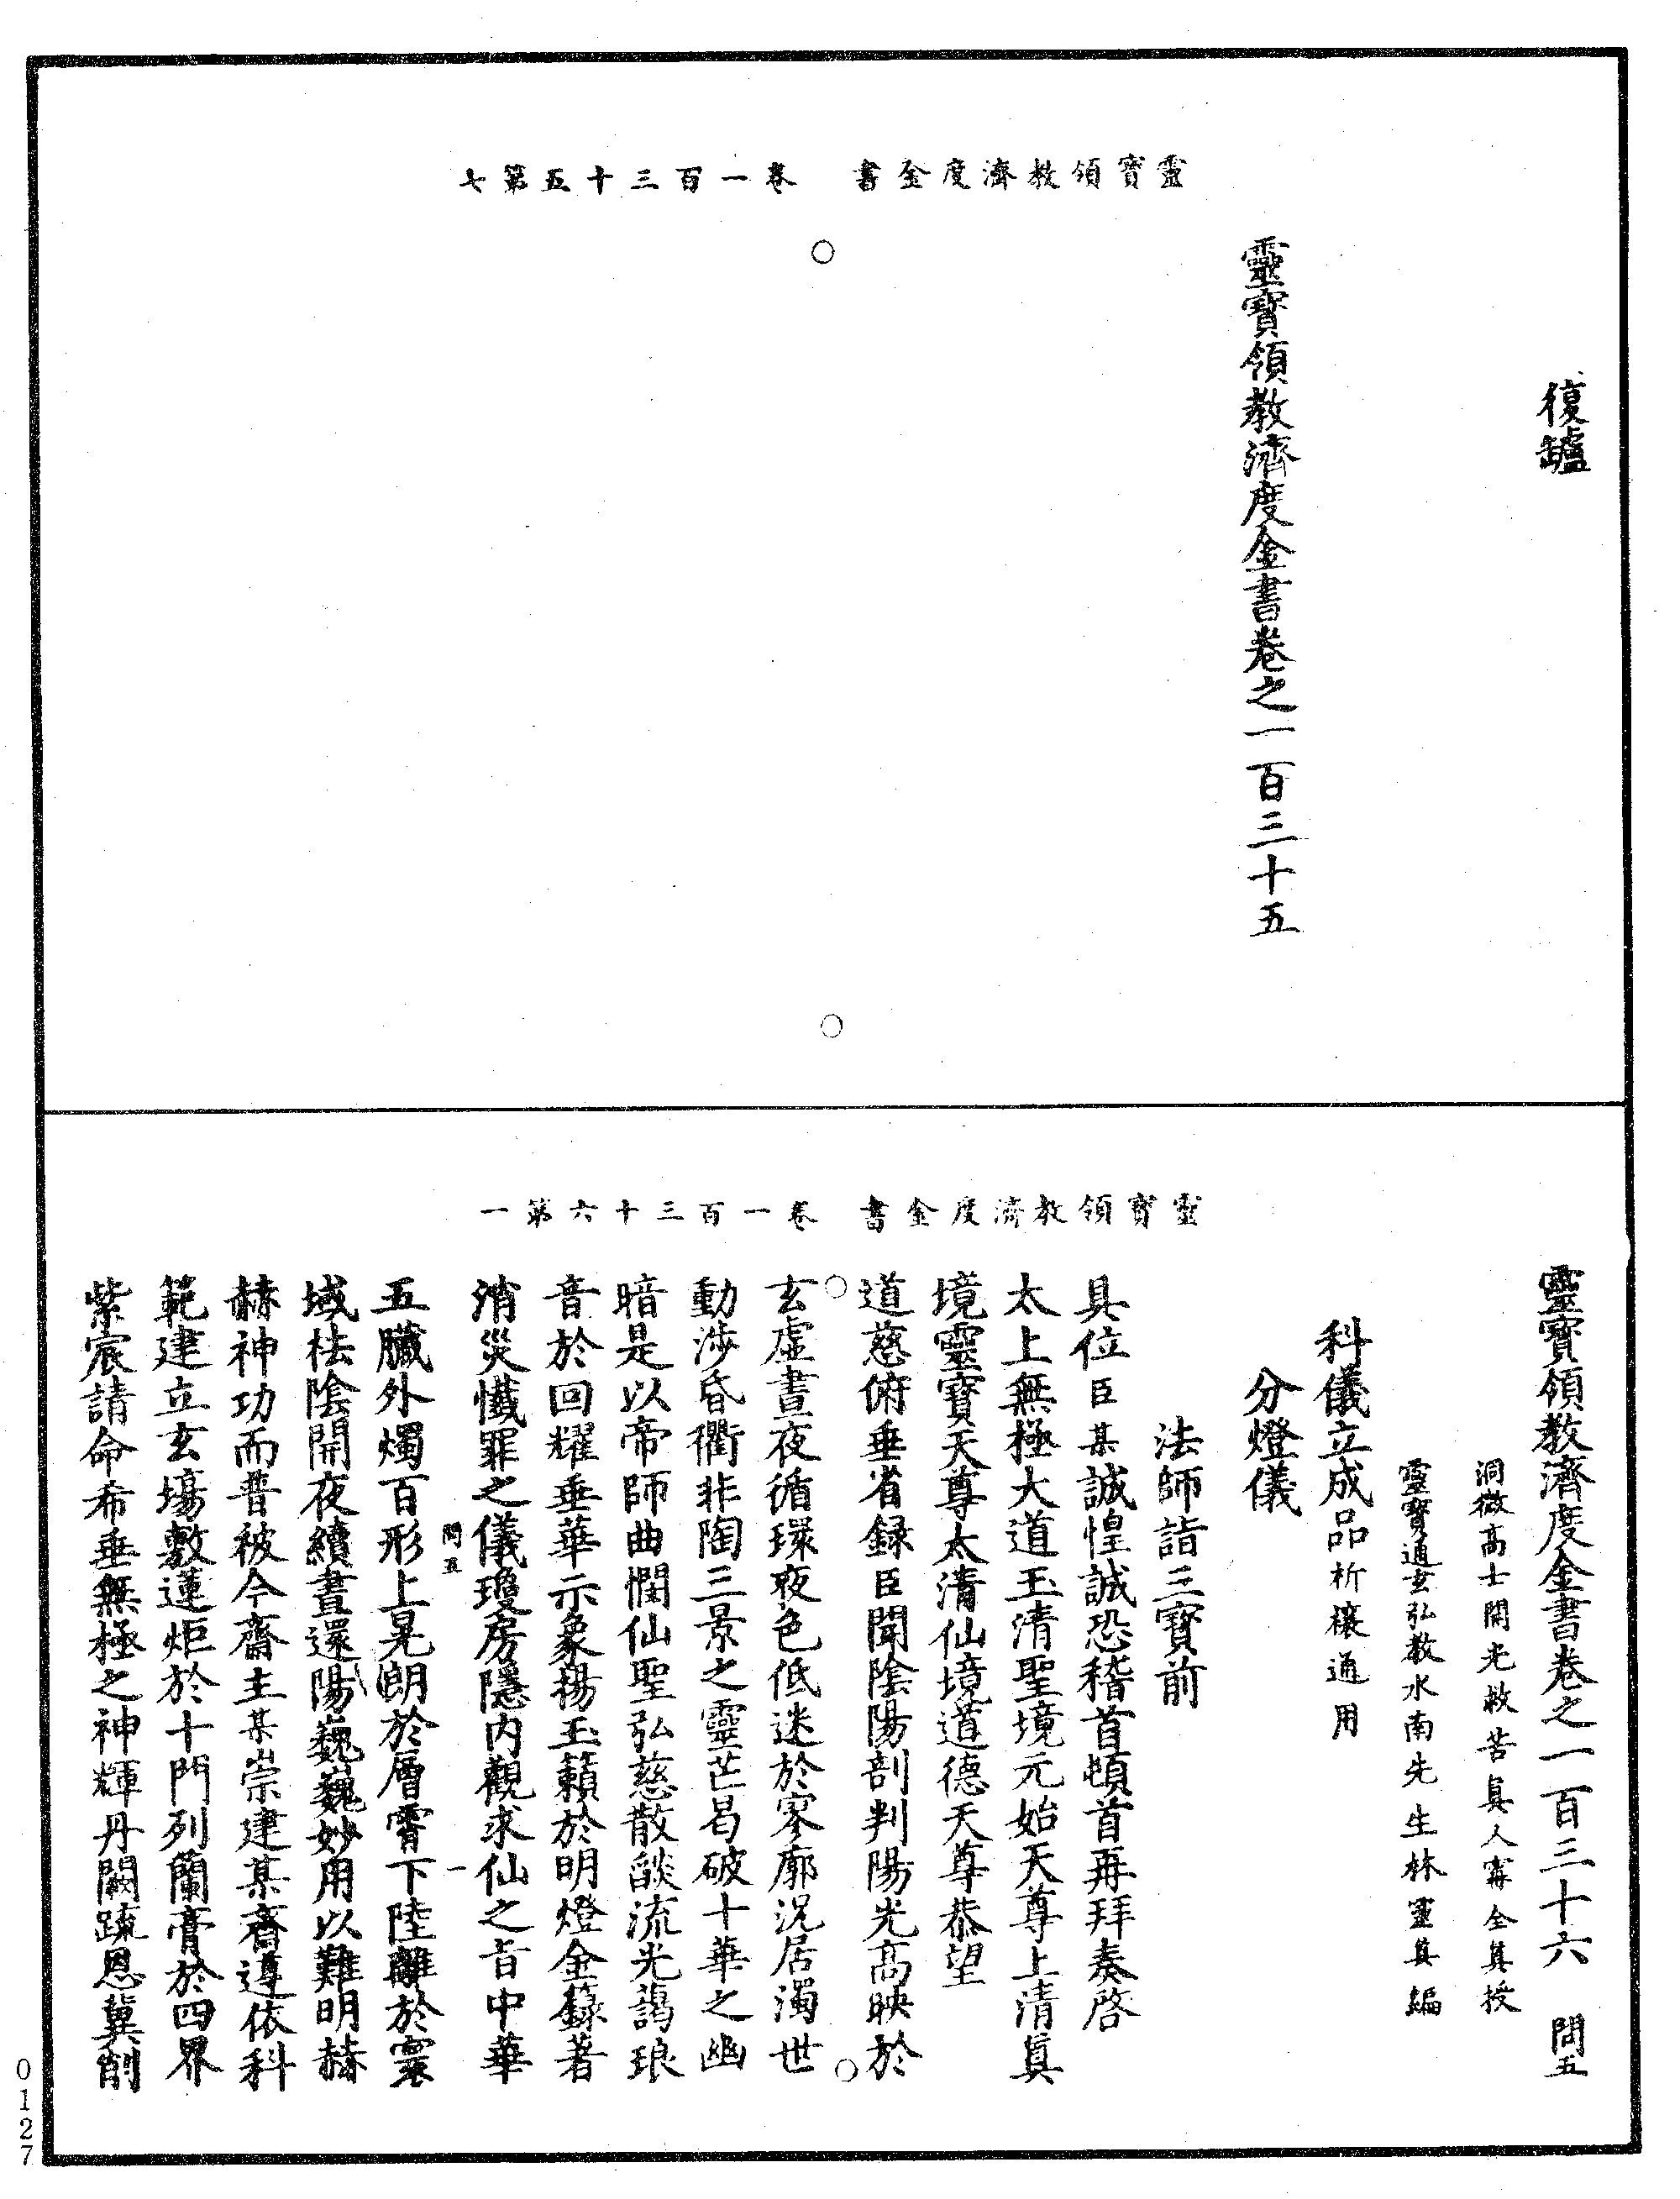 靈寶領教濟度金書　卷一百三十五第七
復爐
靈寶領教濟度金書卷之一百三十五
靈寶領教濟度金書　卷一百三十六第一
靈寶領教濟度金書卷之一百三十六　問五
洞微高士開光救苦眞人寗全眞授
靈寶通玄弘教水南先生林靈眞編
科儀立成品祈禳通用
分燈儀
法師詣三寶前
具位臣某誠惶誠恐稽首頓首再拜奏啓
太上無極大道玉清聖境元始天尊上清眞
境靈寶天尊太清仙境道德天尊恭望
道慈俯垂省録臣聞陰陽剖判陽光高映於
玄虛晝夜循環夜色低迷於寥廓况居濁世
動涉昏衢非陶三景之靈芒曷破十華之幽
暗是以帝師曲憫仙聖弘慈散燄流光謁琅
音於回耀垂華示象揚玉籟於明燈金籙著
消災懺罪之儀瓊房隱内觀求仙之旨中華
問五　一
五臟外燭百形上晃朗於層霄下陸離於寰
域祛陰開夜續晝還陽巍巍妙用以難明赫
赫神功而普被今齋主某崇建某齋遵依科
範建立玄壇敷蓮炬於十門列蘭膏於四界
紫宸請命希垂無極之神輝丹闕䟽恩冀削
0127